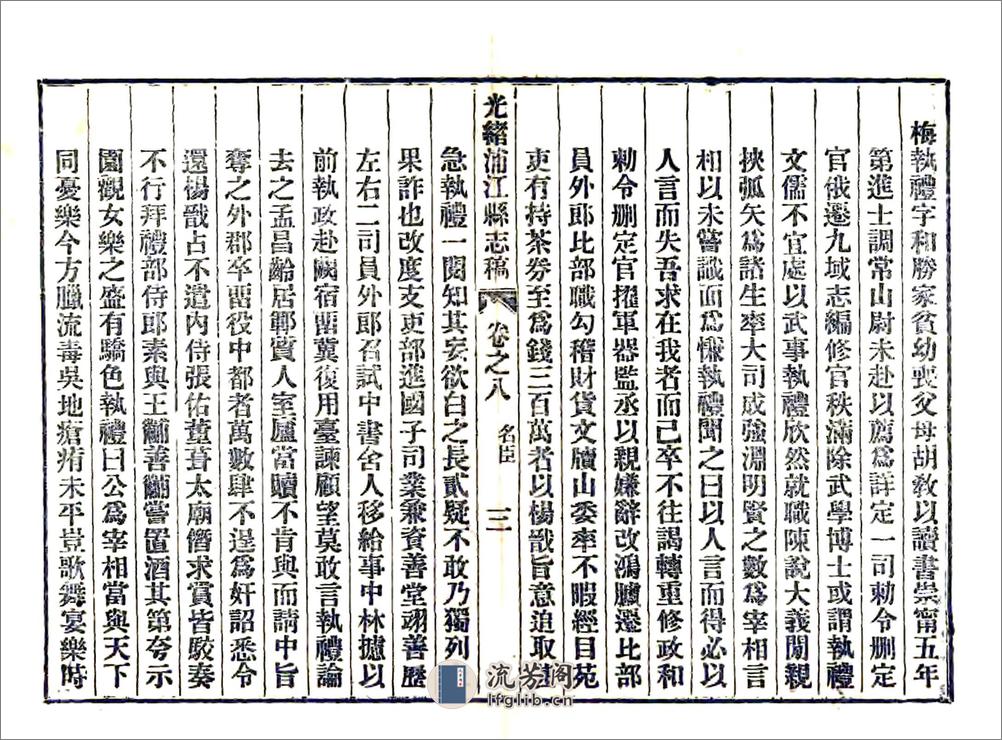 梅執禮字和勝家貧幼喪父母胡教以讀書崇甯五年
第進士調常山尉未赴以薦爲詳定一司勅令删定
官俄遷九域志編修官秩滿除武學博士或謂執禮
文儒不宜處以武事執禮欣然就職陳說大義閒親
挾弧矢爲諸生率大司成強淵明賢之數爲宰相言
相以未嘗識面爲慊執禮聞之曰以人言而得必以
人言而失吾求在我者而已卒不往謁轉重修政和
勅令删定官擢軍器監丞以親嫌辭改鴻臚遷比部
員外郎比部職勾稽財貨文牘山委率不暇經目苑
吏有持茶券至爲錢三百萬者以楊戩旨意追取甚
光緒浦江縣志稿 卷之八 名臣 三
急執禮一閱知其妄欲白之長貳疑不敢乃獨列上
果詐也改度支吏部進國子司業兼資善堂翊善歷
左右二司員外郎召試中書舍人移給事中林攄以
前執政赴闕宿畱冀復用臺諫顧望莫敢言執禮論
去之孟昌齡居鄆質人室廬當贖不肯與而請中旨
奪之外郡卒畱役中都者萬數肆不逞爲奸詔悉令
還楊戩占不遣內侍張佑董葺太廟僭求賞皆駮奏
不行拜禮部侍郎素與王黼善黼嘗置酒其第夸示
園觀女樂之盛有驕色執禮曰公爲宰相當與天下
同憂樂今方臘流毒吳地瘡痏未平豈歌舞宴樂時
流芳阁
lfglib.cn